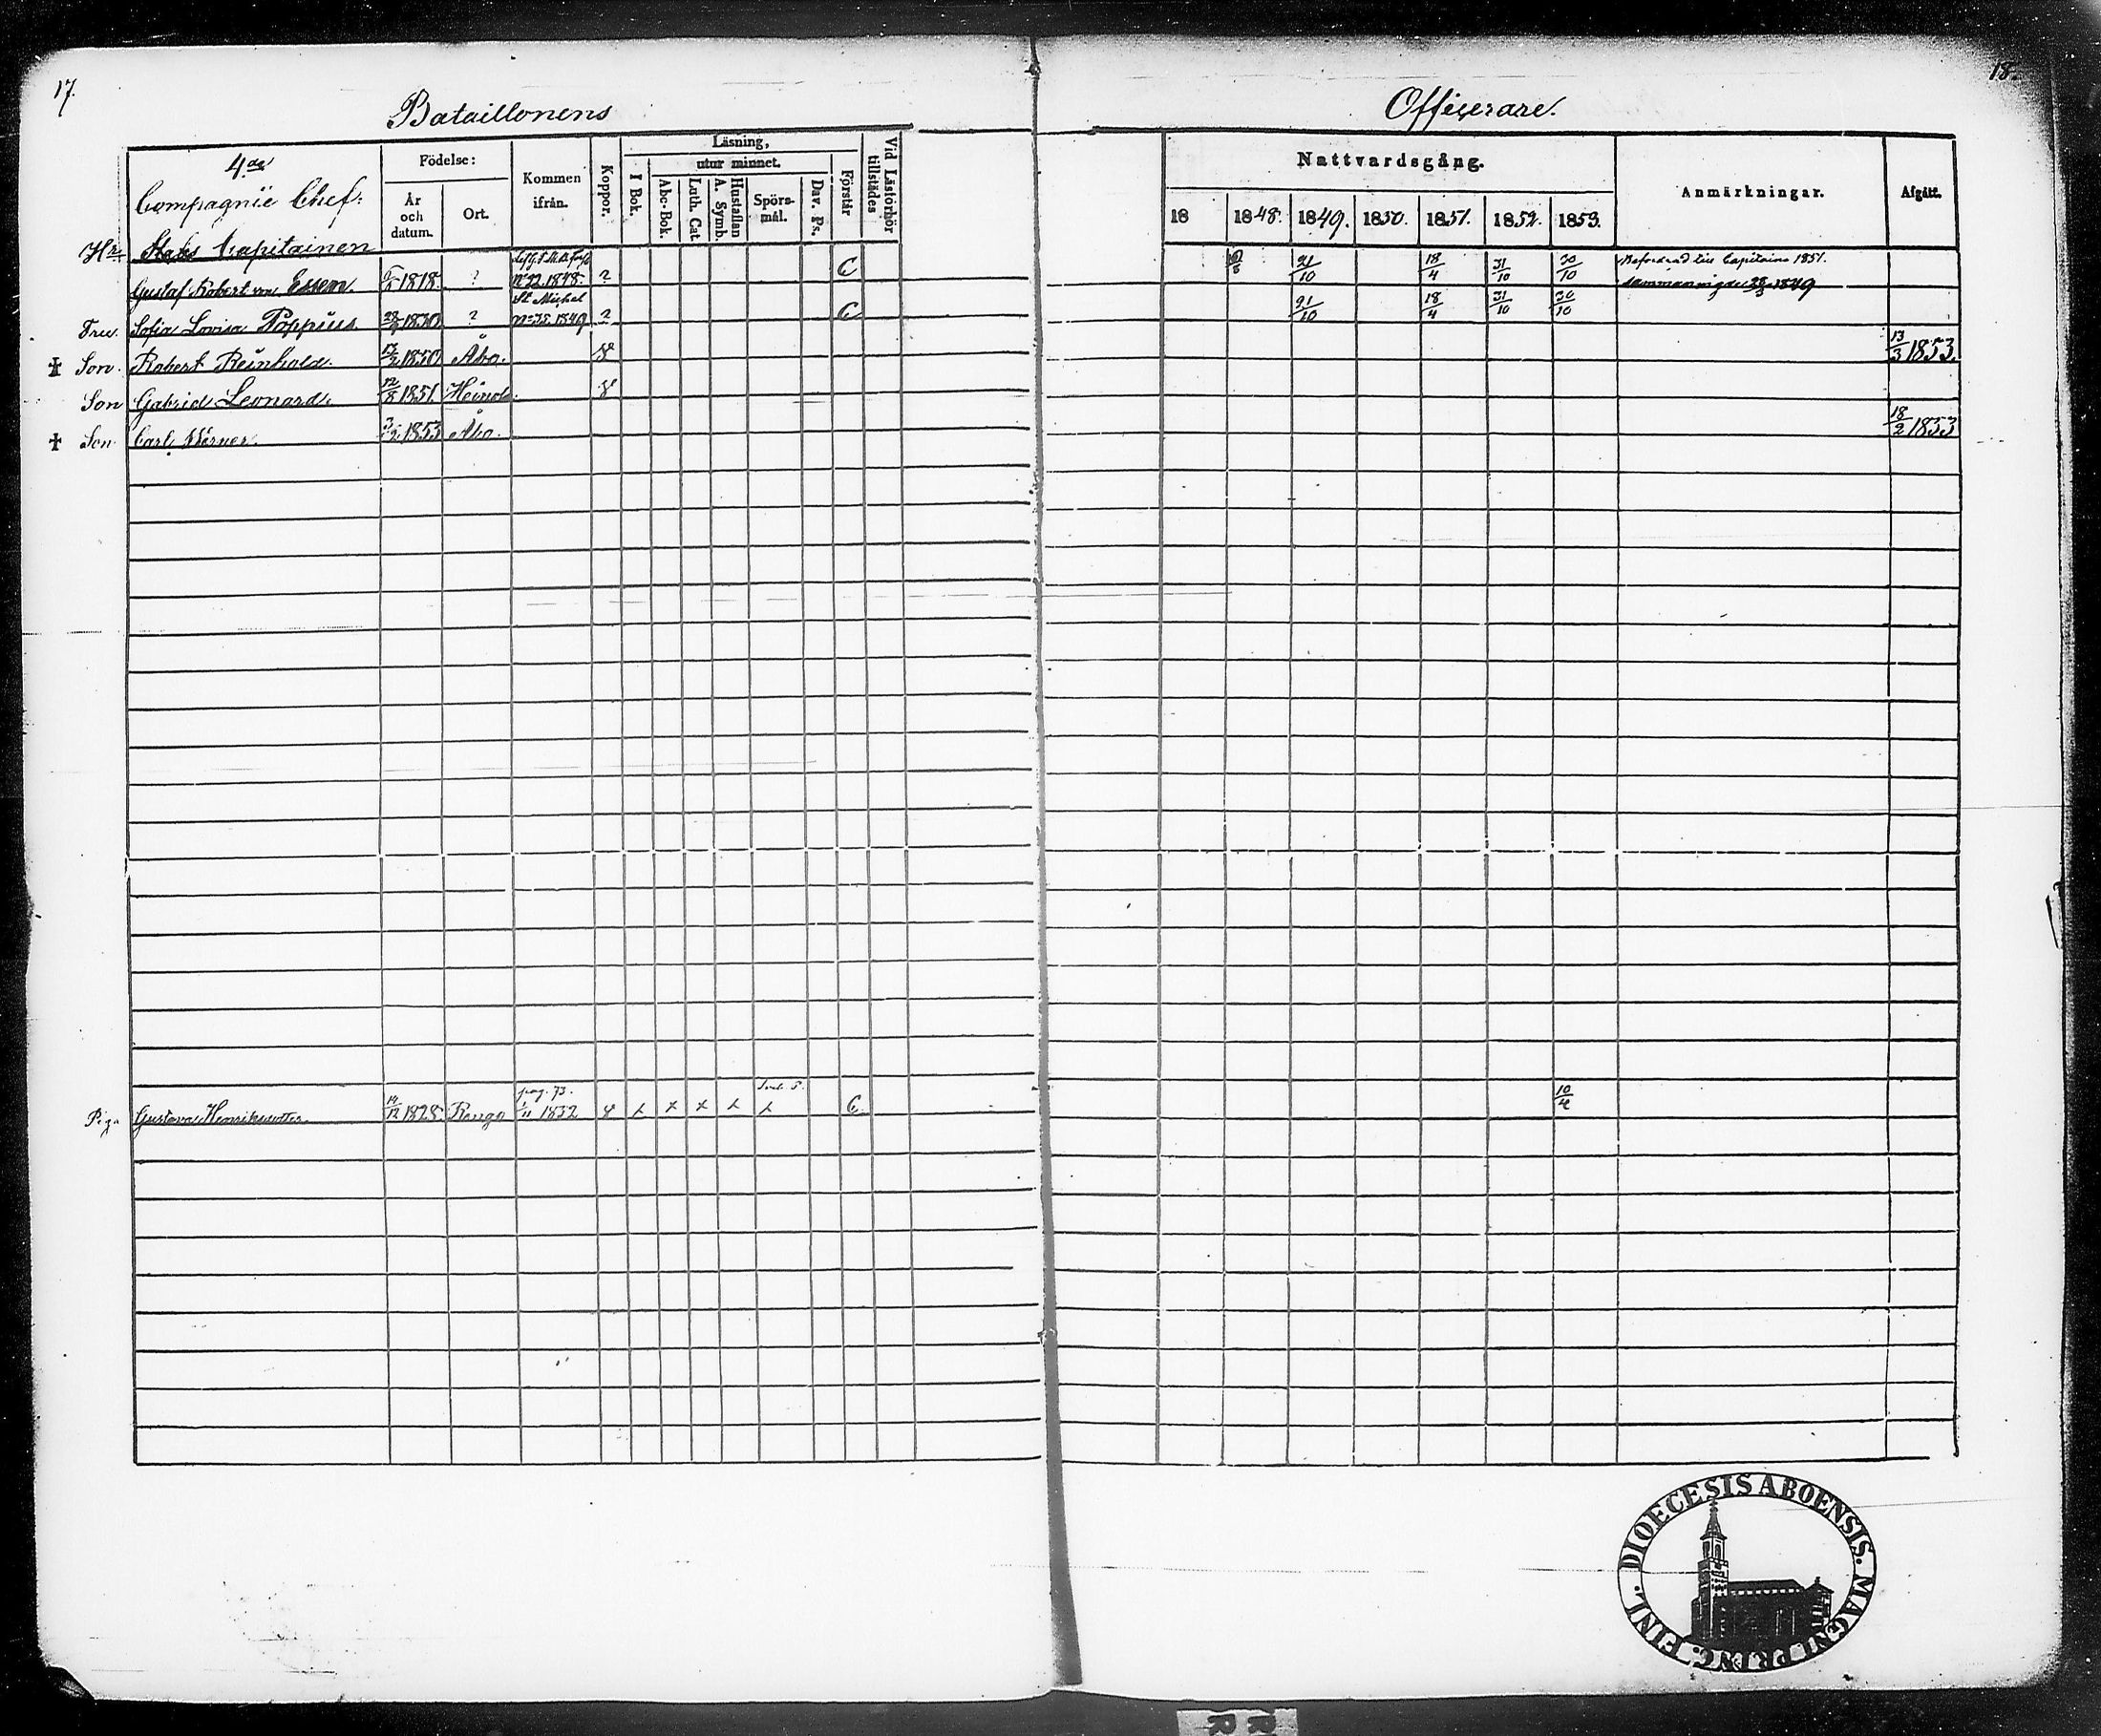 17.
18.
Bataillonens
Officerare.
4de
Compagnie Chef:
Födelse:
År och datum.
Ort.
Kommen ifrån.
Koppor.
Läsning,
I Bok.
utur minnet.
Abc-Bok.
Luth. Cat.
Hustaflan A. Symb.
Spörsmål.
Dav. Ps.
Förstår
Vid Läsförhör tillstädes
Nattvardsgång.
18 1848. 1849. 1850. 1851. 1852. 1853.
Anmärkningar.
Afgått.
Hr Stabs Capitainen
Gustaf Robert von Essen. 1818. ? No 22. 1848. ? C 21/10 18/4 31/10 30/10 Befordrad till Capitaine 1851.
1849
St Michel
Fru Sofia Lovisa Poppius 1830 ? No 35. 1849 ? C 21/10 18/4 31/10 30/10
† Son. Robert Reinhold. 1850 Åbo. 13/3 1853.
Son Gabriel Leonard. 12/8 1851. Heinola
† Son. Carl Werner. 1853 Åbo. 18/2 1853
pag. 73.
Piga Gustava Henriksdotter 14/12 1828. 1/11 1852 x x x x x C 10/4
DIOECESIS ABOENSIS. MAGNI PRINC. FINL.